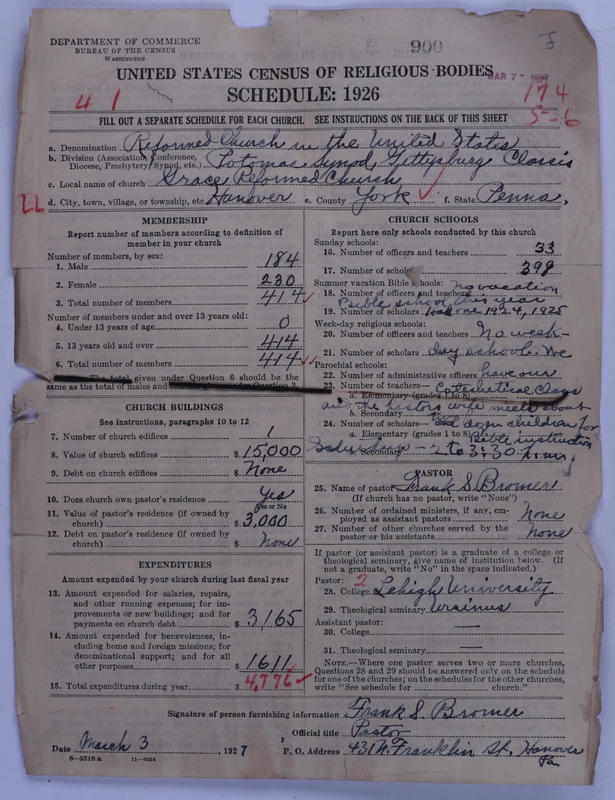 DEPARTMENT OF COMMERCE
BUREAU OF THE CENSUS
WASHINGTON
900
MAR 2
UNITED STATES CENSUS OF RELIGIOUS BODIES
SCHEDULE: 1926
4 1
174
5-6
FILL OUT A SEPARATE SCHEDULE FOR EACH CHURCH. SEE INSTRUCTIONS ON THE BACK OF THIS SHEET
a. Denomination Reformed Church in the United States
b. Division (Association, Conference, Diocese, Presbytery, Synod, etc.) Potomac Synod, Gettysburg Classis
c. Local name of church Grace Reformed Church
d. City, town, village, or township, etc. Hanover e. County York f. State Penna.
MEMBERSHIP
Report number of members according to definition of
member in your church
Number of members, by sex:
1. Male 184
2. Female 230
3. Total number of members 414
Number of members under and over 13 years old:
4. Under 13 years of age 0
5. 13 years old and over 414
6. Total number of members 414
The total given under Question 6 should be the
same as the total of males and
CHURCH BUILDINGS
See instructions, paragraphs 10 to 12
7. Number of church edifices 1
8. Value of church edifices $ 15,000
9. Debt on church edifices $ None
10. Does church own pastor's residence Yes
Yes or No
11. Value of pastor's residence (if owned by
church) $ 3,000
12. Debt on pastor's residence (if owned by
church) $ None
EXPENDITURES
Amount expended by your church during last fiscal year
13. Amount expended for salaries, repairs,
and other running expenses; for im-
provements or new buildings; and for
payments on church debt $ 3165
14. Amount expended for benevolences, in-
cluding home and foreign missions; for
denominational support; and for all
other purposes $ 1611
15. Total expenditures during year $ 4,776
CHURCH SCHOOLS
Report here only schools conducted by this church
Sunday schools:
16. Number of officers and teachers 33
17. Number of scholars 398
Summer vacation Bible schools: No vacation
18. Number of officers and teachers
Bible school this year
19. Number of scholars Had one 1924, 1925
Week-day religious schools:
20. Number of officers and teachers No week-
21. Number of scholars day school. We
Parochial schools:
22. Number of administrative officers have our
23. Number of teachers— Catechetical Class
a. Elementary (grades 1 to 8)
and the pastors wife meets about
b. Secondary
24. Number of scholars— dozen children for
a. Elementary (grades 1 to 8) Bible instruction
b. Secondary 2 to 3:30 p.m.
PASTOR
25. Name of pastor Frank S. Bromer
(If church has no pastor, write "None")
26. Number of ordained ministers, if any, em-
ployed as assistant pastors None
27. Number of other churches served by the
pastor or his assistants None
If pastor (or assistant pastor) is a graduate of a college or
theological seminary, give name of institution below. (If
not a graduate, write "No" in the space indicated.)
Pastor: 2
28. College Lehigh University
29. Theological seminary Ursinus
Assistant pastor:
30. College —
31. Theological seminary —
NOTE.—Where one pastor serves two or more churches,
Questions 28 and 29 should be answered only on the schedule
for one of the churches; on the schedules for the other churches,
write "See schedule for church."
Signature of person furnishing information Frank S. Bromer
Official title Pastor
Date March 3, 1927 P. O. Address 431 N. Franklin St. Hanover
Pa.
8—3518a 11—9024